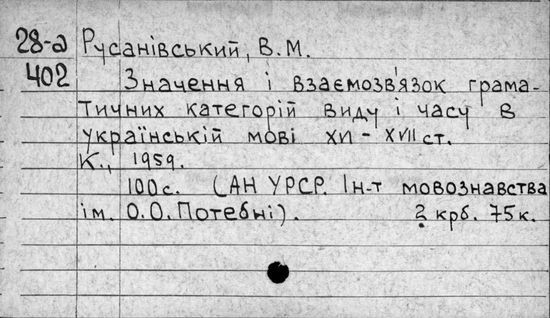 28-а Русанівський, В.М.
402 Значення і взаємозв'язок грама-
тичних категорій виду і часу в
українській мові XVI - XVII ст.
К., 1959.
100 с. (АН УРСР. Ін-т мовознавства
ім. О.О. Потебні). 2 крб. 75 к.